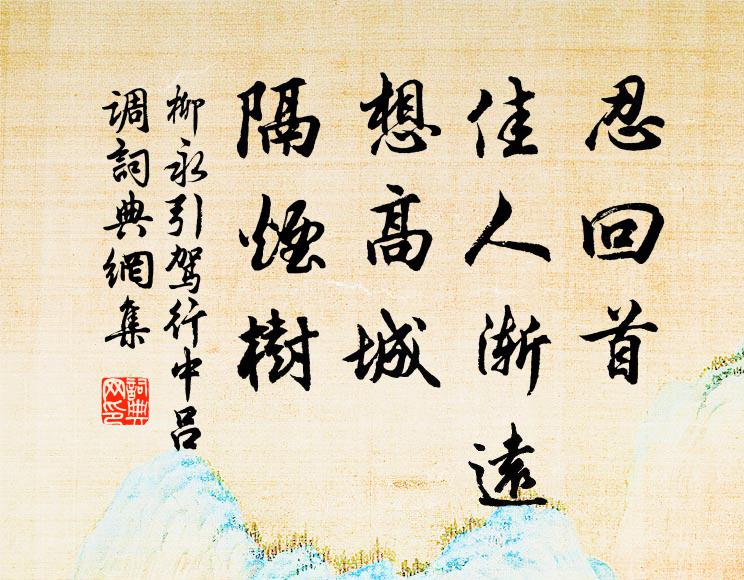 忍回首
佳人渐遠
想高城
隔煙樹
柳永引駕行中呂
调詞典網集
詞典网印